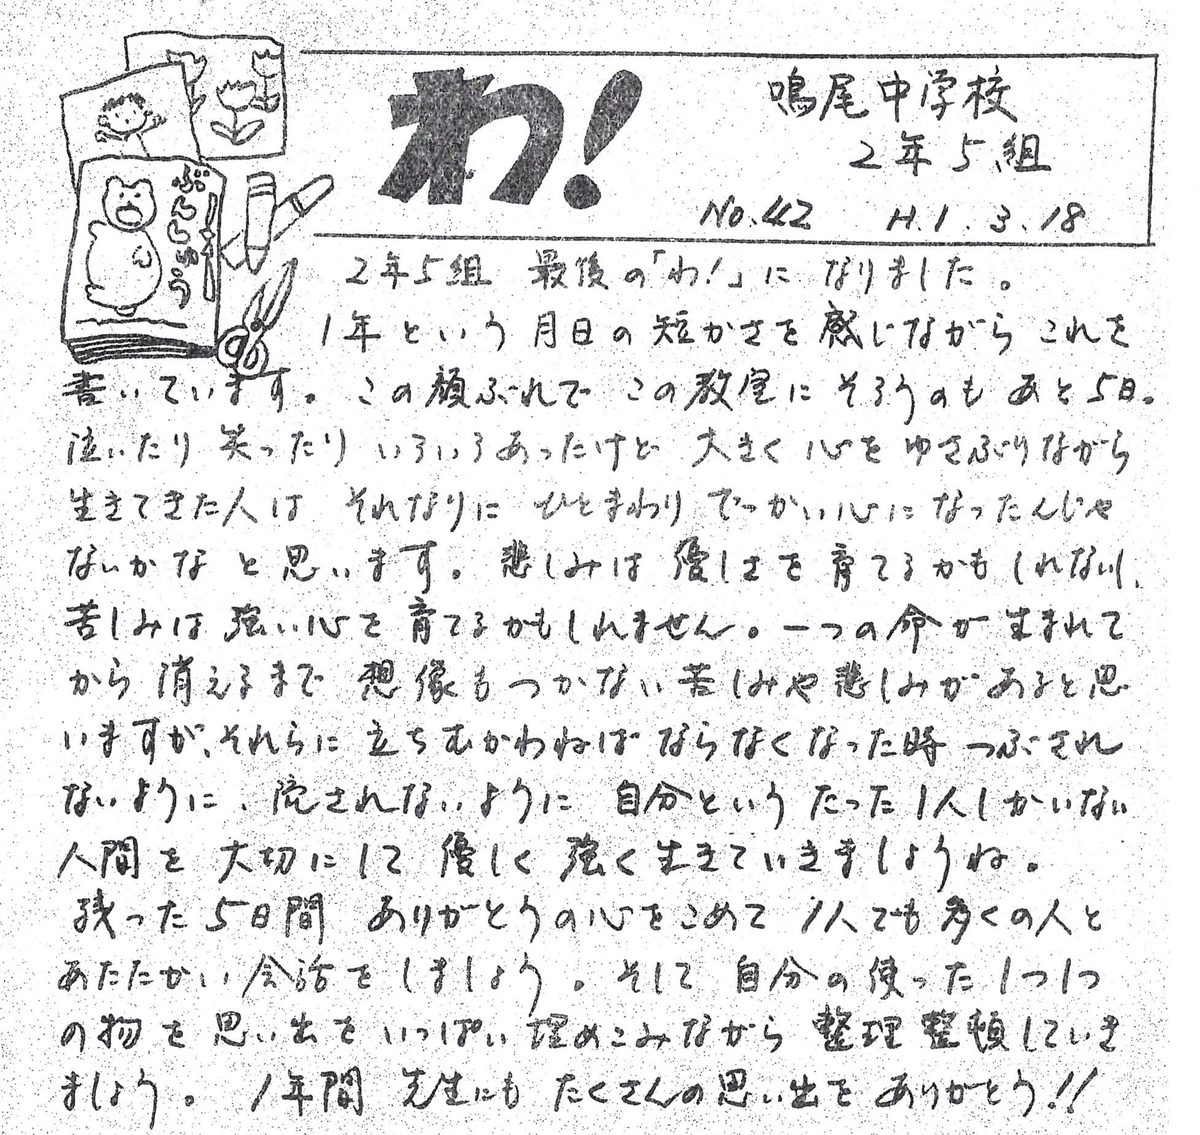 わ!
鳴尾中学校
2年5組
No.42 H.1.3.18
ぶんしゅう
2年5組 最後の「わ!」に なりました。
1年という月日の短かさを感じながら これを
書いています。この顔ぶれで この教室に そろうのも あと5日。
泣いたり 笑ったり いろいろあったけど 大きく 心を ゆさぶりながら
生きてきた人は それなりに ひとまわり でっかい心に なったんじゃ
ないかな と思います。悲しみは 優しさを 育てるかもしれないし、
苦しみは 強い心を 育てるかもしれません。一つの命が 生まれて
から 消えるまで 想像もつかない 苦しみや悲しみが あると思
いますが、それらに 立ちむかわねば ならなくなった時 つぶされ
ないように、流されないように 自分という たった1人しかいない
人間を 大切にして 優しく 強く生きていきましょうね。
残った5日間 ありがとうの心をこめて 1人でも多くの人と
あたたかい会話をしましょう。そして 自分の使った1つ1つ
の物を 思い出をいっぱい埋めこみながら 整理整頓していき
ましょう。 1年間 先生にも たくさんの思い出を ありがとう!!